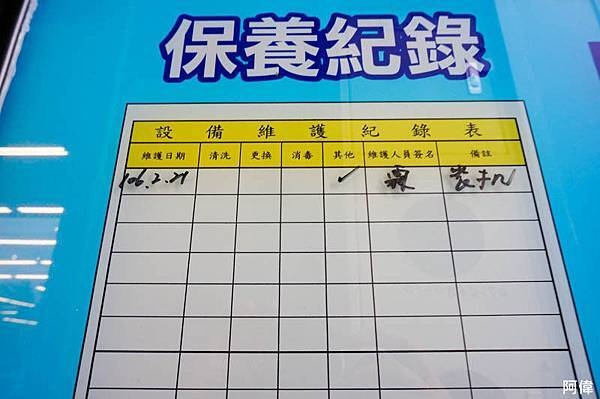 保養紀錄
設備維護紀錄表
維護日期 清洗 更換 消毒 其他 維護人員簽名 備註
106.2.21 ✓ 裝机
阿偉